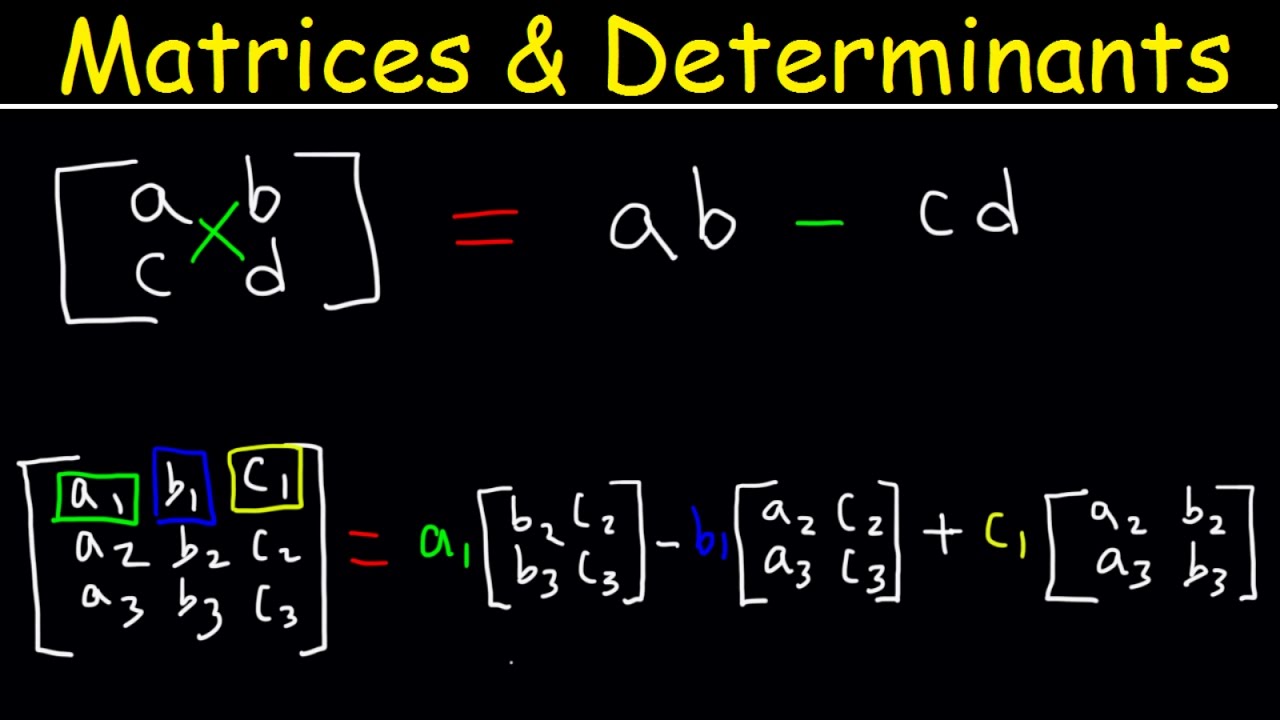 Matrices & Determinants
[a b
c d] = ab - cd
[a₁ b₁ c₁
a₂ b₂ c₂
a₃ b₃ c₃] = a₁ [b₂ c₂
b₃ c₃] - b₁ [a₂ c₂
a₃ c₃] + c₁ [a₂ b₂
a₃ b₃]